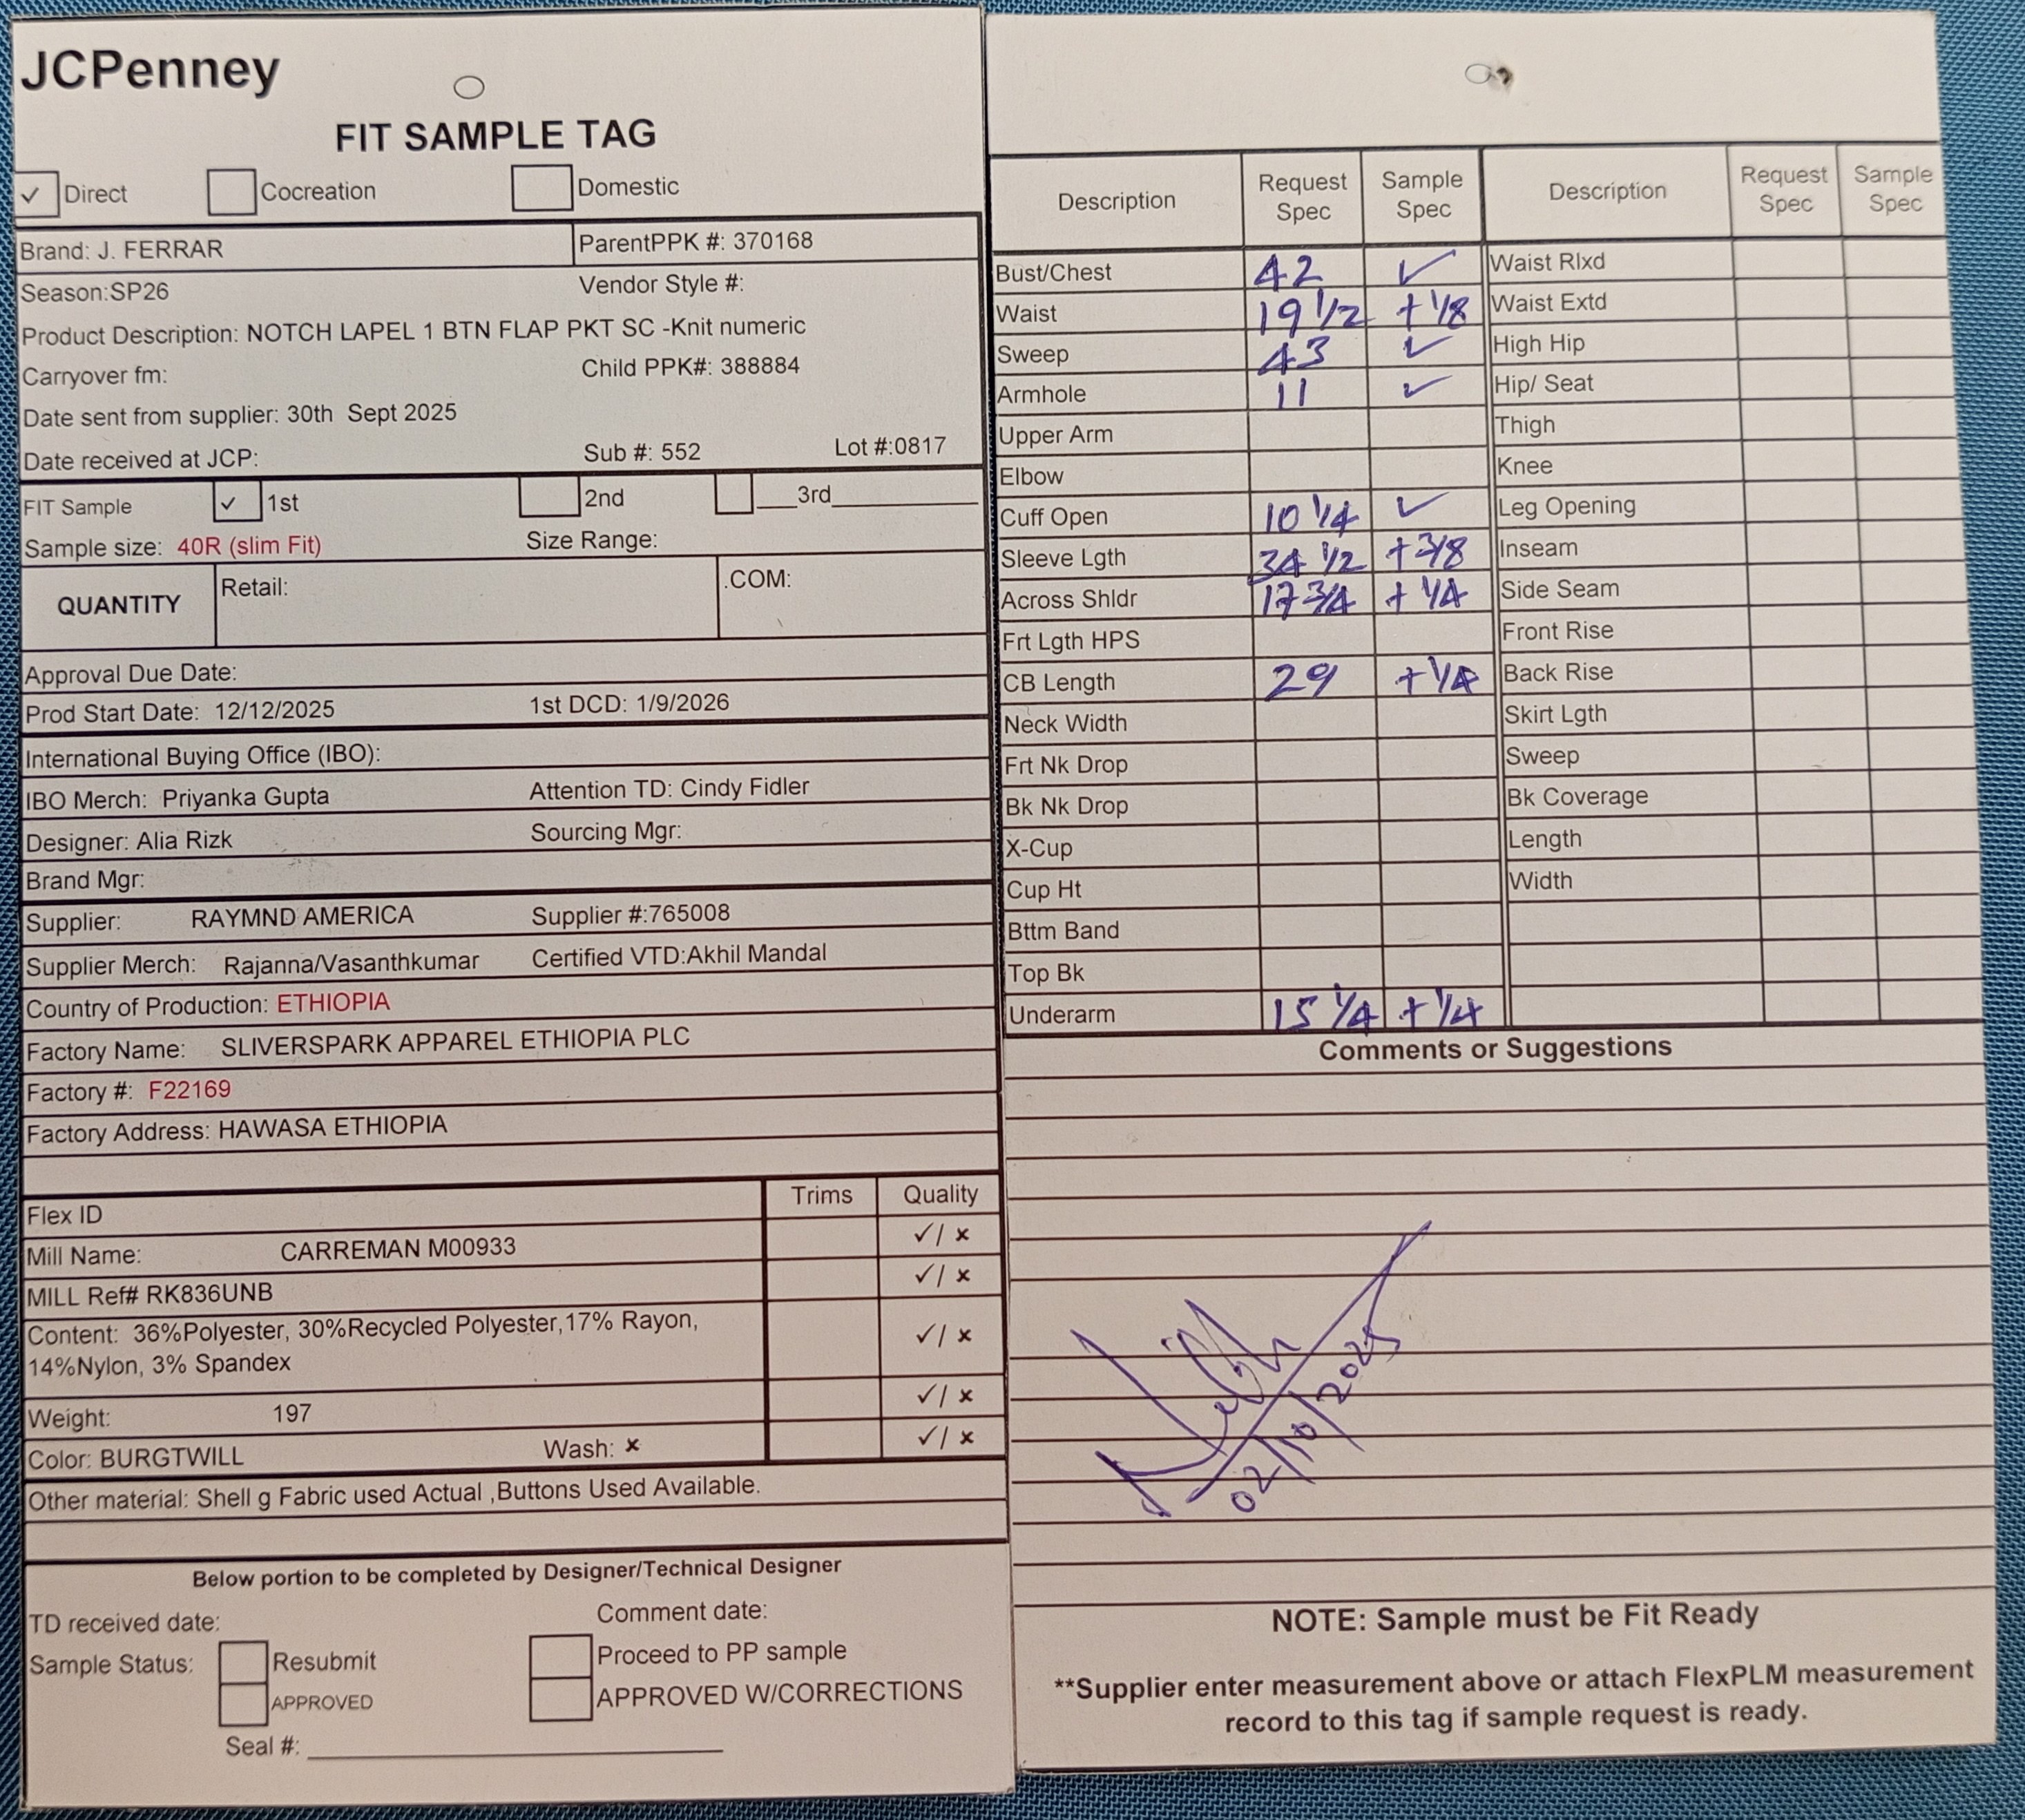 JCPenney
FIT SAMPLE TAG
✓ Direct Cocreation Domestic
Brand: J. FERRAR ParentPPK #: 370168
Season:SP26 Vendor Style #:
Product Description: NOTCH LAPEL 1 BTN FLAP PKT SC -Knit numeric
Carryover fm: Child PPK#: 388884
Date sent from supplier: 30th Sept 2025
Date received at JCP: Sub #: 552 Lot #:0817
FIT Sample ✓ 1st 2nd ___3rd
Sample size: 40R (slim Fit) Size Range:
QUANTITY Retail: .COM:
Approval Due Date:
Prod Start Date: 12/12/2025 1st DCD: 1/9/2026
International Buying Office (IBO):
IBO Merch: Priyanka Gupta Attention TD: Cindy Fidler
Designer: Alia Rizk Sourcing Mgr:
Brand Mgr:
Supplier: RAYMND AMERICA Supplier #:765008
Supplier Merch: Rajanna/Vasanthkumar Certified VTD:Akhil Mandal
Country of Production: ETHIOPIA
Factory Name: SLIVERSPARK APPAREL ETHIOPIA PLC
Factory #: F22169
Factory Address: HAWASA ETHIOPIA
Flex ID Trims Quality
Mill Name: CARREMAN M00933 ✓/ ×
MILL Ref# RK836UNB ✓/ ×
Content: 36%Polyester, 30%Recycled Polyester,17% Rayon, ✓/ ×
14%Nylon, 3% Spandex
Weight: 197 ✓/ ×
Color: BURGTWILL Wash: × ✓/ ×
Other material: Shell g Fabric used Actual ,Buttons Used Available.
Below portion to be completed by Designer/Technical Designer
TD received date: Comment date:
Sample Status: Resubmit Proceed to PP sample
APPROVED APPROVED W/CORRECTIONS
Seal #:
Description Request Spec Sample Spec Description Request Spec Sample Spec
Bust/Chest 42 ✓ Waist Rlxd
Waist 19 1/2 +1/8 Waist Extd
Sweep 43 ✓ High Hip
Armhole 11 ✓ Hip/ Seat
Upper Arm Thigh
Elbow Knee
Cuff Open 10 1/4 ✓ Leg Opening
Sleeve Lgth 34 1/2 +3/8 Inseam
Across Shldr 17 3/4 +1/4 Side Seam
Frt Lgth HPS Front Rise
CB Length 29 +1/4 Back Rise
Neck Width Skirt Lgth
Frt Nk Drop Sweep
Bk Nk Drop Bk Coverage
X-Cup Length
Cup Ht Width
Bttm Band
Top Bk
Underarm 15 1/4 +1/4
Comments or Suggestions
02/10/2025
NOTE: Sample must be Fit Ready
**Supplier enter measurement above or attach FlexPLM measurement
record to this tag if sample request is ready.